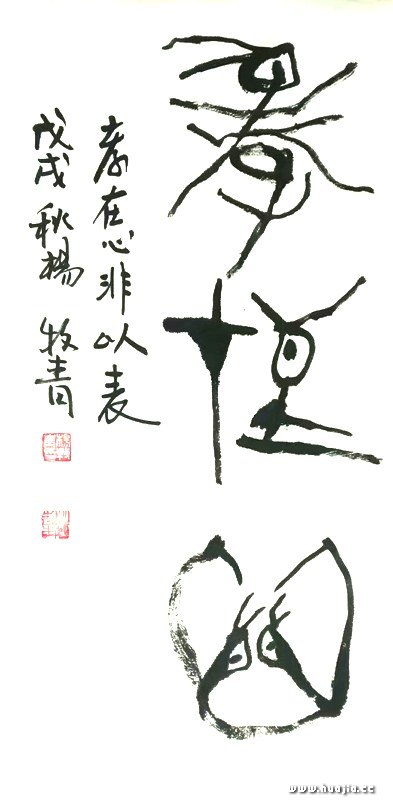 孝在心
孝在心非以表
戊戌秋楊牧青
www.huajia.cc